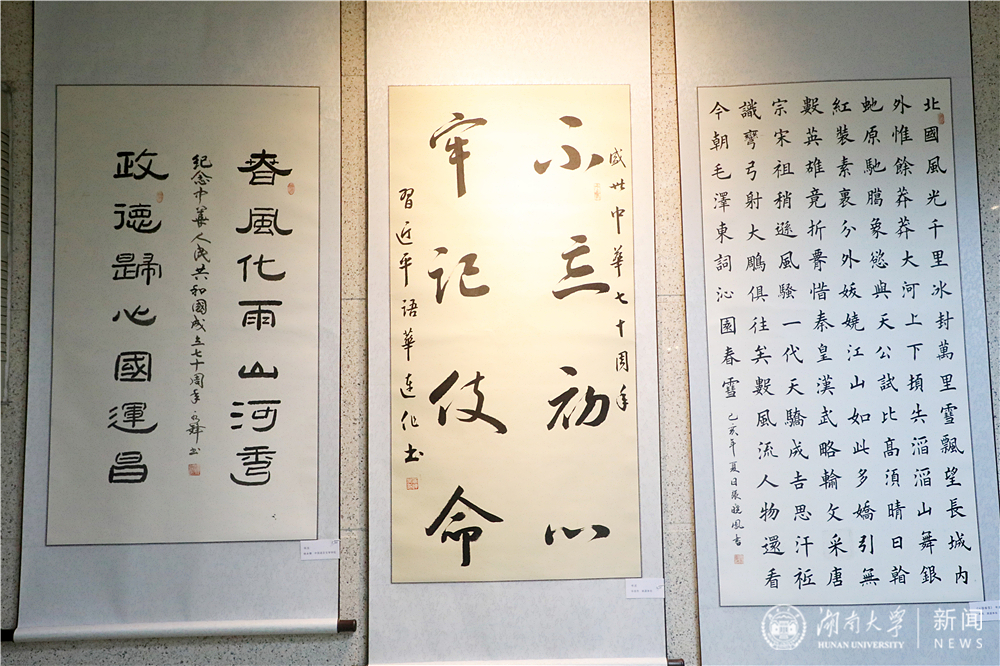 春風化雨山河秀
紀念中華人民共和國成立七十周年
政德歸心國運昌
盛世中華七十周年
不忘初心
牢記使命
習近平語華連化书
北國風光千里冰封萬里雪飄望長城内
外惟餘莽莽大河上下頓失滔滔山舞銀
虵原馳臘象慾與天公試比高須晴日看
紅裝素裹分外妖嬈江山如此多嬌引無
數英雄竞折腰惜秦皇漢武略輸文采唐
宗宋祖稍遜風騷一代天驕成吉思汗祗
識彎弓射大鵰俱往矣數風流人物還看
今朝毛澤東詞沁園春雪
己亥年夏日張曉風書
湖南大学
HUNAN UNIVERSITY
新闻
NEWS